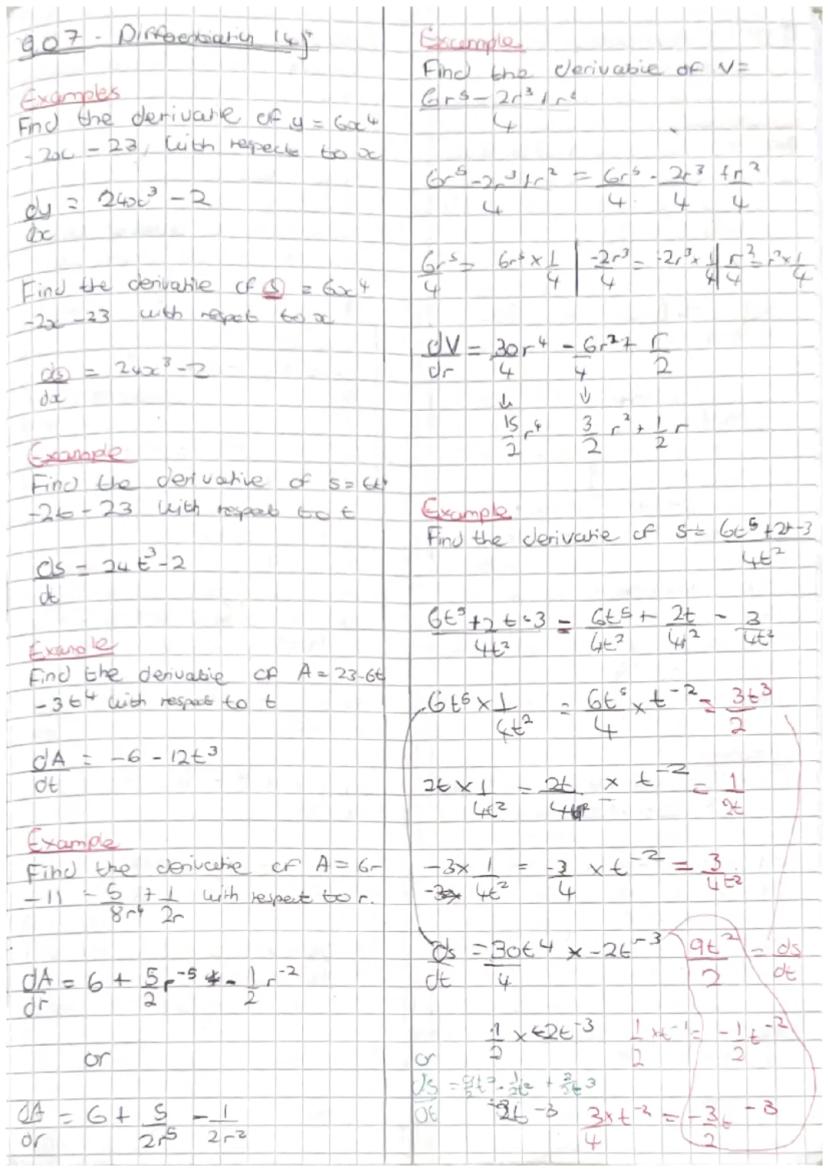 907 - Differentiation (4)
Examples
Find the derivative of y = 6x⁴
- 2x - 23, with respect to x
dy/dx = 24x³ - 2
Find the derivative of s = 6x⁴
-2x - 23 with respect to x
ds/dx = 24x³ - 2
Example
Find the derivative of s = 6t⁴
-2t - 23 with respect to t
ds/dt = 24t³ - 2
Example
Find the derivative of A = 23-6t
- 3t⁴ with respect to t
dA/dt = -6 - 12t³
Example
Find the derivative of A = 6r
- 11 - 5/8r⁴ + 1/2r with respect to r.
dA/dr = 6 + 5/2 r⁻⁵ - 1/2 r⁻²
or
dA/dr = 6 + 5/2r⁵ - 1/2r²
Example
Find the derivative of V=
6r⁵ - 2r³ + r²/4
6r⁵ - 2r³ + r²/4 = 6r⁵/4 - 2r³/4 + r²/4
6r⁵/4 = 6r⁵ × 1/4 | -2r³/4 = -2r³ × 1/4 | r²/4 = r² × 1/4
dV/dr = 30r⁴/4 - 6r²/4 + r/2
↓ ↓
15/2 r⁴ 3/2 r² + 1/2 r
Example
Find the derivative of s = 6t⁵ + 2t - 3/4t²
6t⁵ + 2t - 3/4t² = 6t⁵/4t² + 2t/4t² - 3/4t²
6t⁵ × 1/4t² = 6t⁵/4 × t⁻² = 3t³/2
2t × 1/4t² = 2t/4 × t⁻² = 1/2t
-3 × 1/4t² = -3/4 × t⁻² = 3/4t²
ds/dt = 30t⁴/4 × -2t⁻³ 9t²/2 = ds/dt
1/2 × -2t⁻³ 1/2 × t⁻¹ = -1/2 t⁻²
or
ds/dt =
-2t⁻³ 3/4 × t⁻² = -3/2 t⁻³